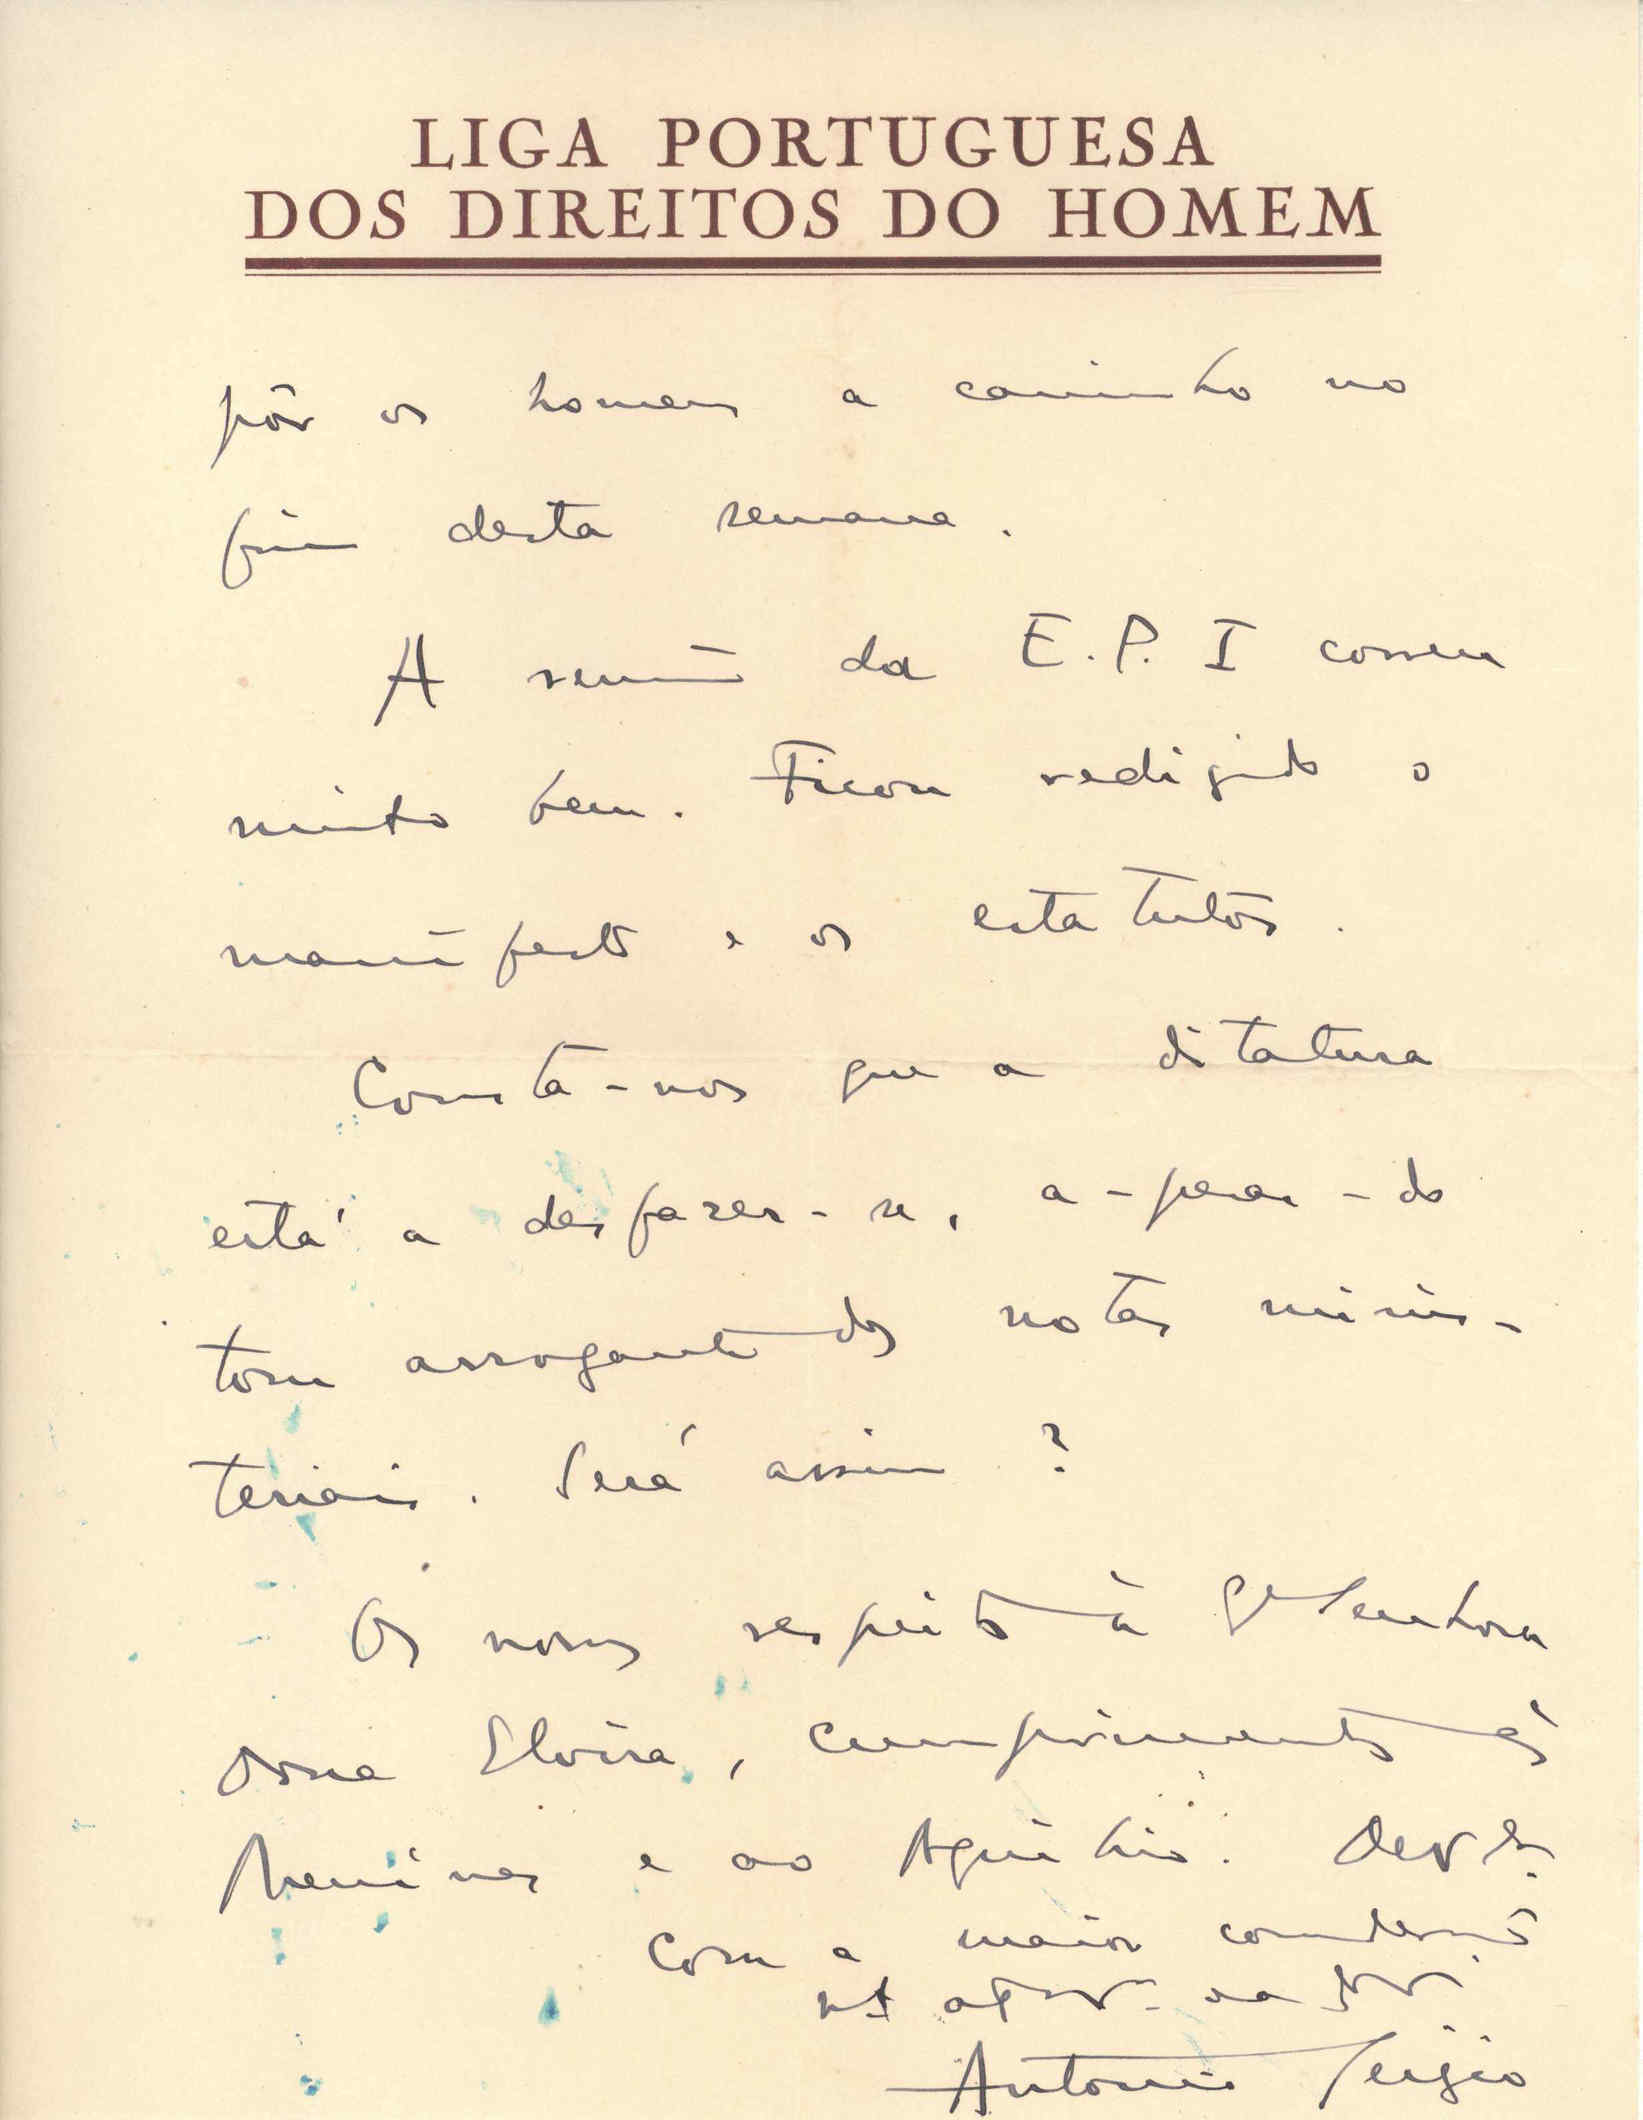 LIGA PORTUGUESA
DOS DIREITOS DO HOMEM
pôr os homens a caminho no
fim desta semana.
A reunião da E. P. I correu
muito bem. Ficou redigido o
manifesto e os estatutos.
Consta-nos que a ditatura
está a desfazer-se, a-pesar-do
tom arrogante das notas minis-
teriais. Será assim?
Os nossos respeitos à Senhora
Dona Elvira, cumprimentos às
Meninas e ao Agui
Com a maior consideração
Antonio Sérgio